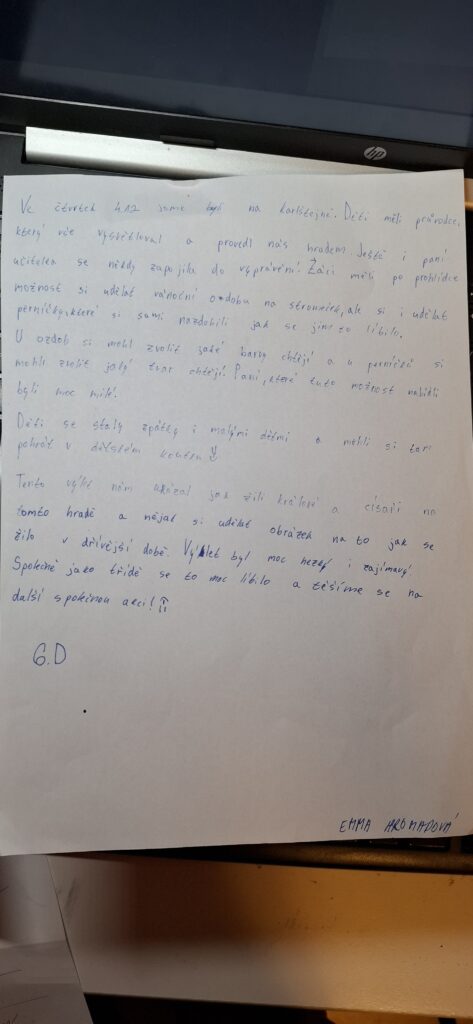 hp
Ve čtvrtek 4.12 jsme byli na Karlštejně. Děti měli průvodce,
který vše vysvětloval a provedl nás hradem. Ještě i paní
učitelka se někdy zapojila do vyprávění. Žáci měli po prohlídce
možnost si udělat vánoční ozdobu na stromeček, ale si i udělat
perníčky, které si sami nazdobili jak se jim to líbilo.
U ozdob si mohl zvolit jaké barvy chtějí a u perníčků si
mohli zvolit jaký tvar chtějí! Paní, které tuto možnost nabídli
byli moc milé.
Děti se staly zpátky i malými dětmi a mohli si tam
pohrát v dětském koutku
Tento výlet nám ukázal jak žili králové a císaři na
tomto hradě a nějak si udělat obrázek na to jak se
žilo v dřívější době. Výlet byl moc hezký i zajímavý
Společně jako třídě se to moc líbilo a těšíme se na
další společnou akci!
6.D
EMMA